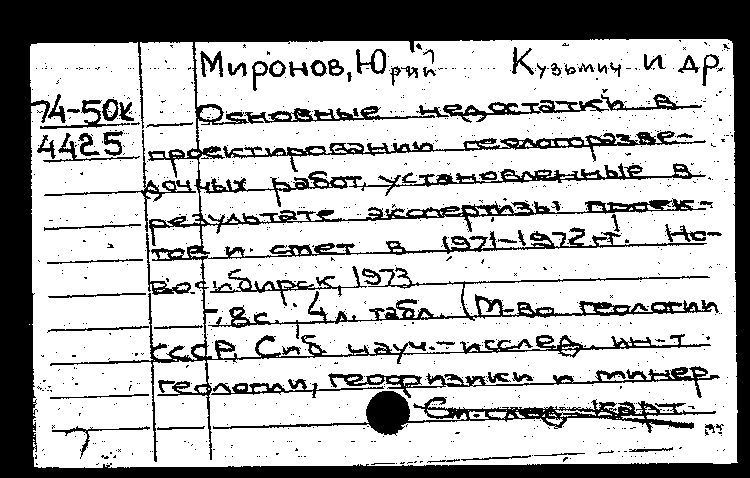 Миронов, Юрий Кузьмич и др.
74-50к
4425
Основные недостатки в
проектировании геологоразве-
дочных работ, установленные в
результате экспертизы проек-
тов и смет в 1971-1972 гг. Но-
восибирск, 1973
8 с.; 4 л. табл. (М-во геологии
СССР. Сиб науч.-исслед. ин-т
геологии, геофизики и минер.
См. след. карт.